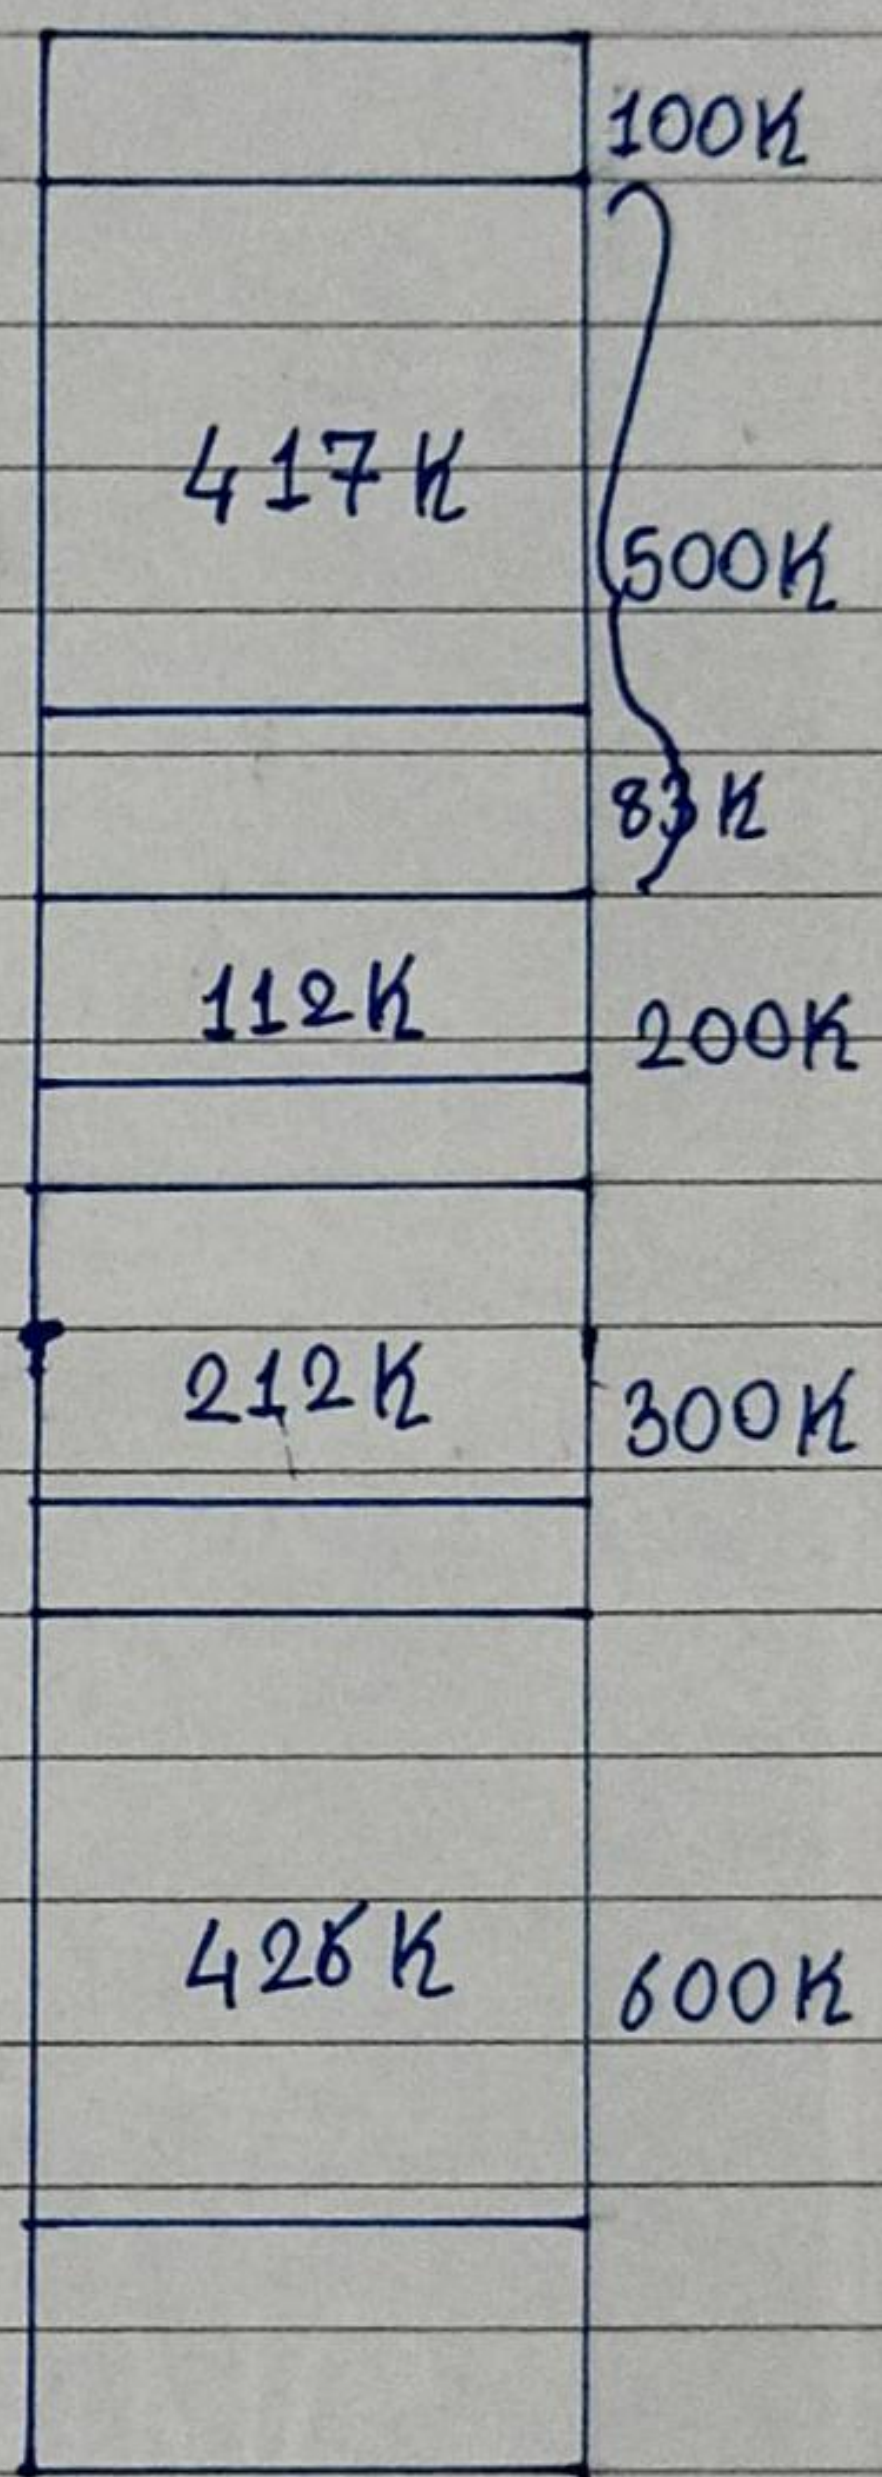 100K
417K
500K
83K
112K
200K
212K
300K
426K
600K